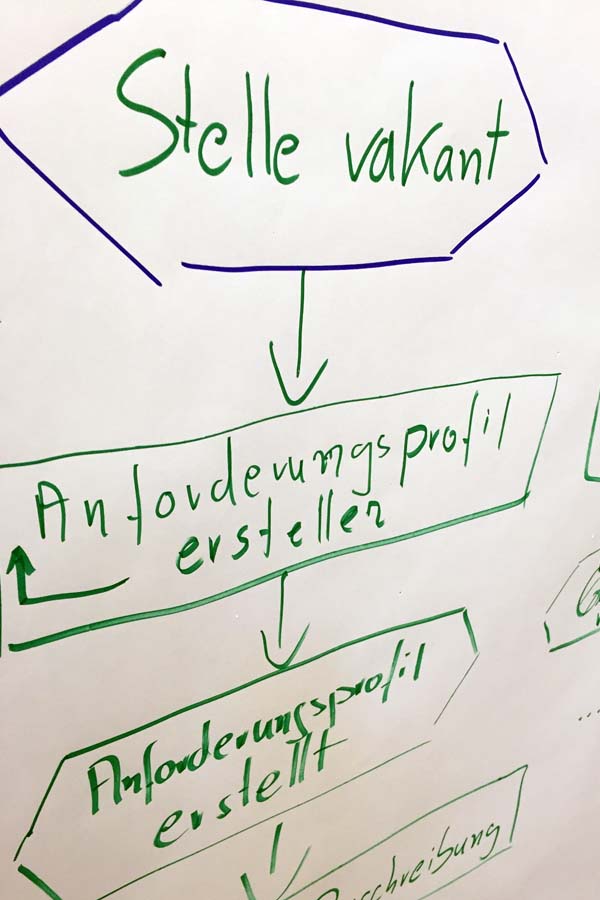 Stelle vakant
Anforderungsprofil
erstellen
Anforderungsprofil
erstellt
...